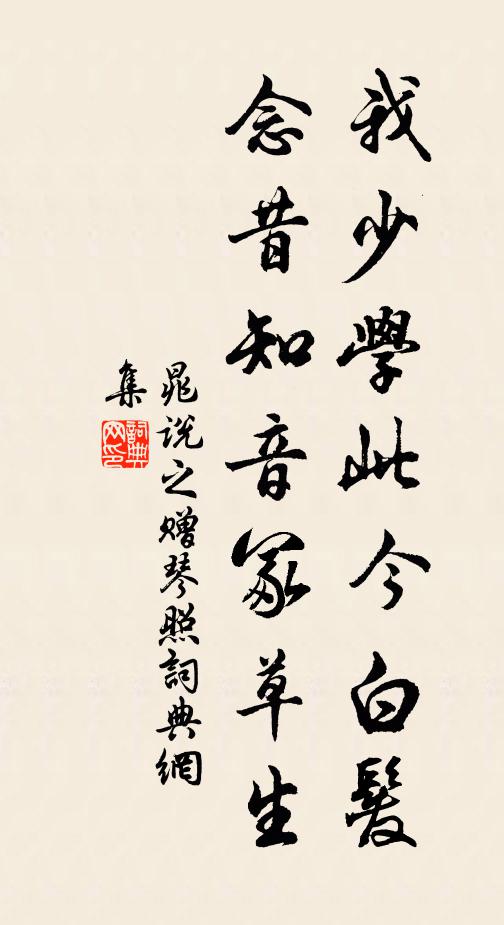 我少學此今白髮
念昔知音冢草生
晁說之贈琴照詞典網
集
詞典
网印